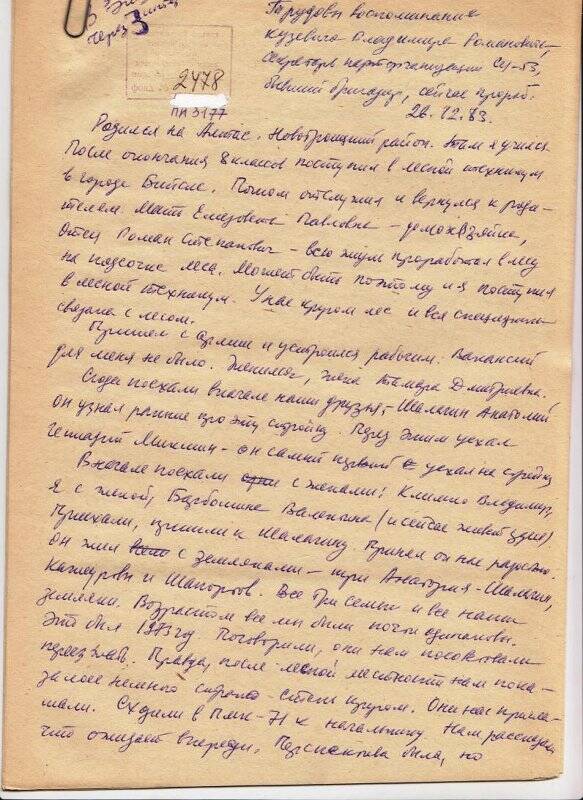 через 3
2478
ПИ 3177
Трудовы воспоминания
Кузевича Владимира Романовича,
секретаря парторганизации СУ-53,
бывший бригадир, сейчас прораб.
26.12.83.
Родился на Алтае. Новотроицкий район. Там я учился.
После окончания 8 классов поступил в лесной техникум
в городе Бийске. Потом отслужил и вернулся к роди-
телям. Мать Елизовета Павловна - домохозяйка,
Отец Роман Степанович - всю жизнь проработал в лесу
на подсочке леса. Может быть поэтому и я поступил
в лесной техникум. У нас кругом лес и вся специальность
связана с лесом.
Пришел с армии и устроился рабочим. Вакансий
для меня не было. Женился, жена Тамара Дмитриевна.
Сюда поехали вначале наши друзья - Шалагин Анатолий
он узнал раньше про эту стройку. Перед этим уехал
Геннадий Микшин - он самый первый уехал на стройку
Вначале поехали с женами: Климко Владимир,
Я с женой, Валентина (и сейчас живет здесь)
Приехали, пришли к Шалагину. Принял он нас радостно.
он жил с земляками - три Анатолия - Шалагин,
и Шапортов. Все три семьи и все наши
земляки. Возрастом все мы были почти одинаковы.
Это был 1973 год. Поговорили, они нам посоветовали
переезжать. Правда, после лесной местности нам пока-
залось немного строго - степь кругом. Они нас пригла-
шали. Сходили в ПМК-71 к начальнику. Нам рассказали
что ожидает впереди. Перспектива была, но